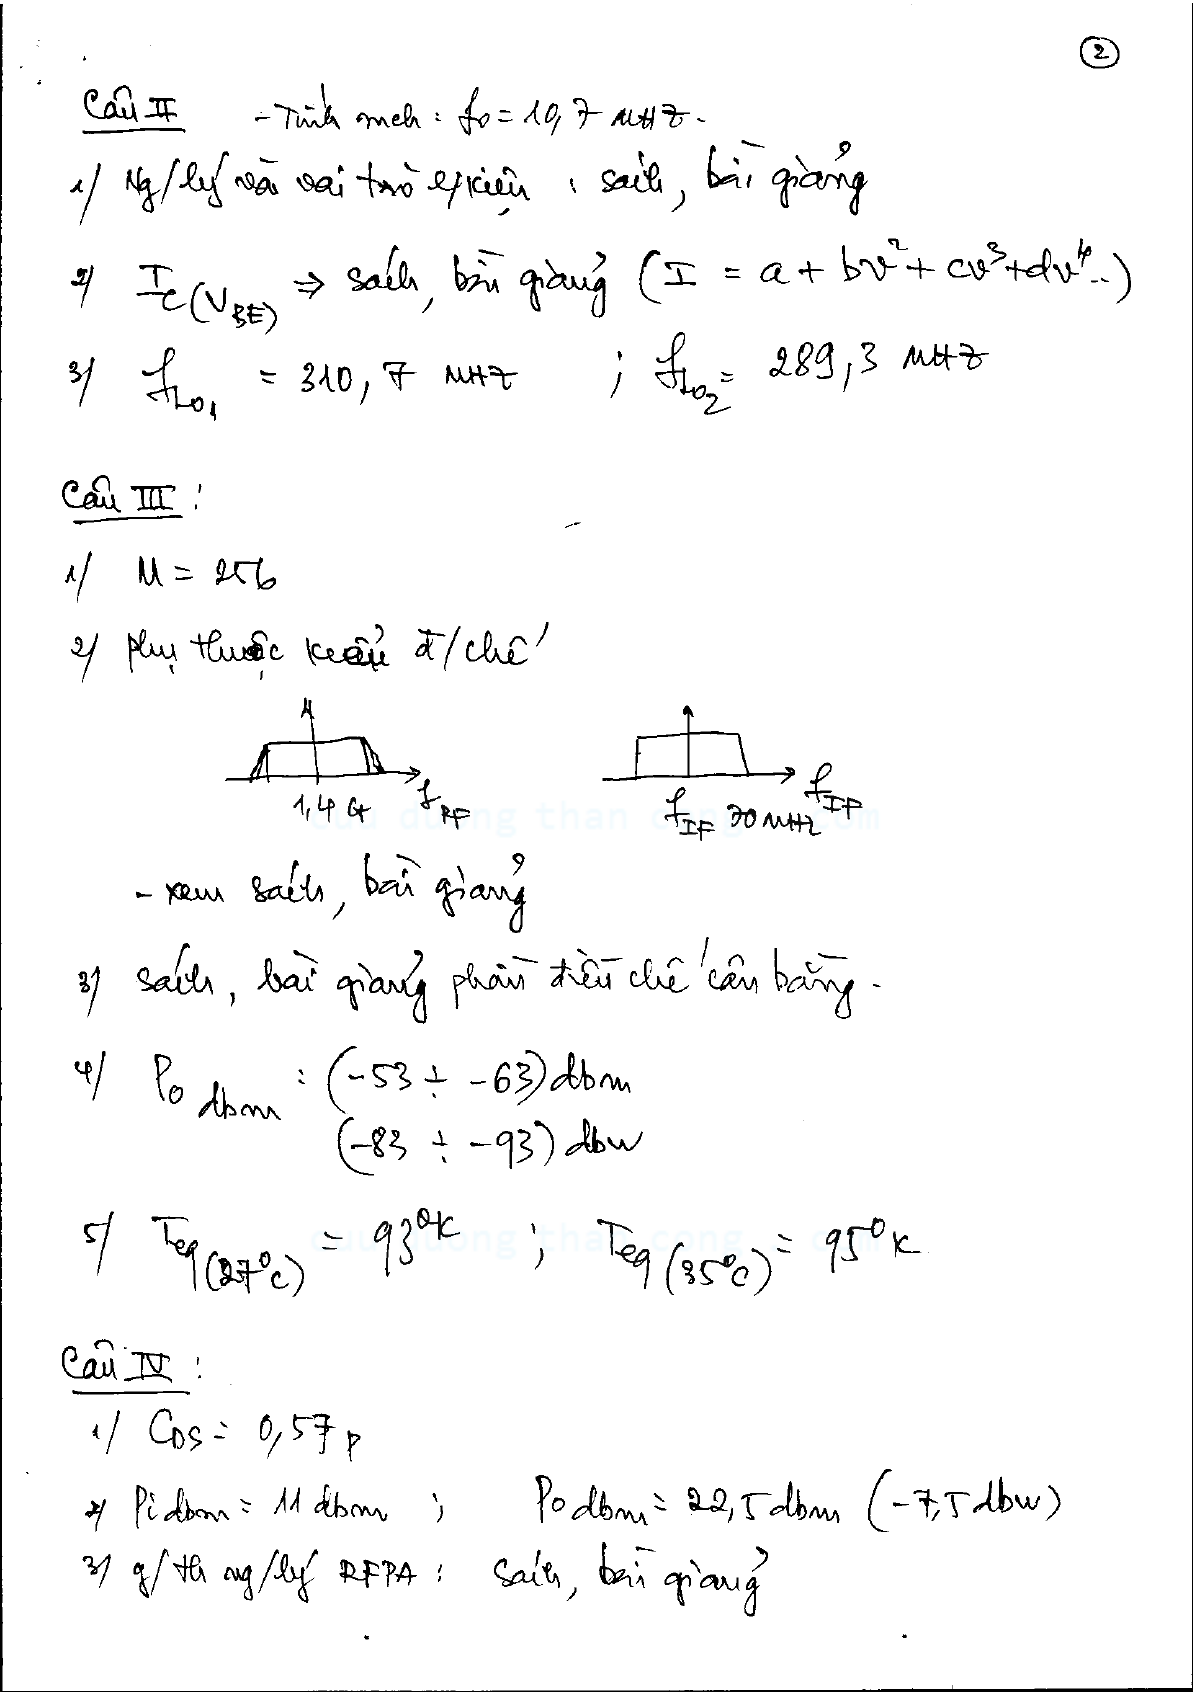 ②
Câu II - Tính mch : fo = 10,7 MHZ.
1/ Ng/lý và vai trò l/kiện : sách, bài giảng
2/ Ic(VBE) ⇒ sách, bài giảng (I = a + bv² + cv³ + dv⁴..)
3/ fLO1 = 310,7 MHZ ; fLO2 = 289,3 MHZ
Câu III :
1/ M = 256
2/ phụ thuộc kiểu đ/chế
1,4 G fRF fIF 70 MHz fIF
cuu duong than cong . com
- xem sách, bài giảng
3/ sách, bài giảng phần điều chế cân bằng.
4/ Po dbm : (-53 ÷ -63) dbm
(-83 ÷ -93) dbw
5/ Teq (27°C) = 93°K ; Teq (35°C) = 95°K
cuu duong than cong . com
Câu IV :
1/ CDS = 0,57 p
2/ Pi dbm = 11 dbm ; Po dbm = 22,5 dbm (-7,5 dbw)
3/ g/th ng/lý RFPA : sách, bài giảng